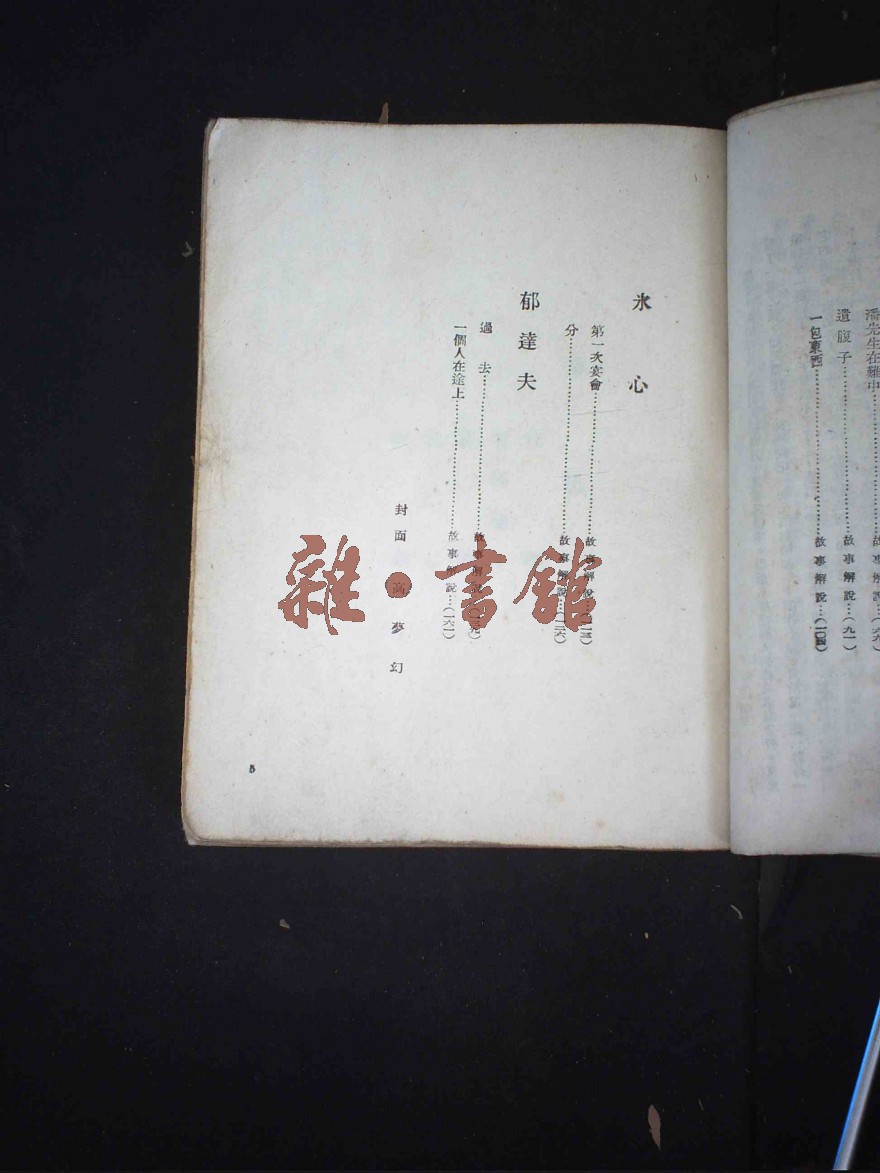 潘先生在難中…………故事解說…(六九)
遺腹子…………故事解說…(九一)
一包東西…………故事解說…(一〇四)
氷心
第一次宴會…………故事解說
分…………故事解說…(一三六)
郁達夫
過去…………故事解說
一個人在途上…………故事解說…(一六一)
封面 高夢幻
5
雜·書館